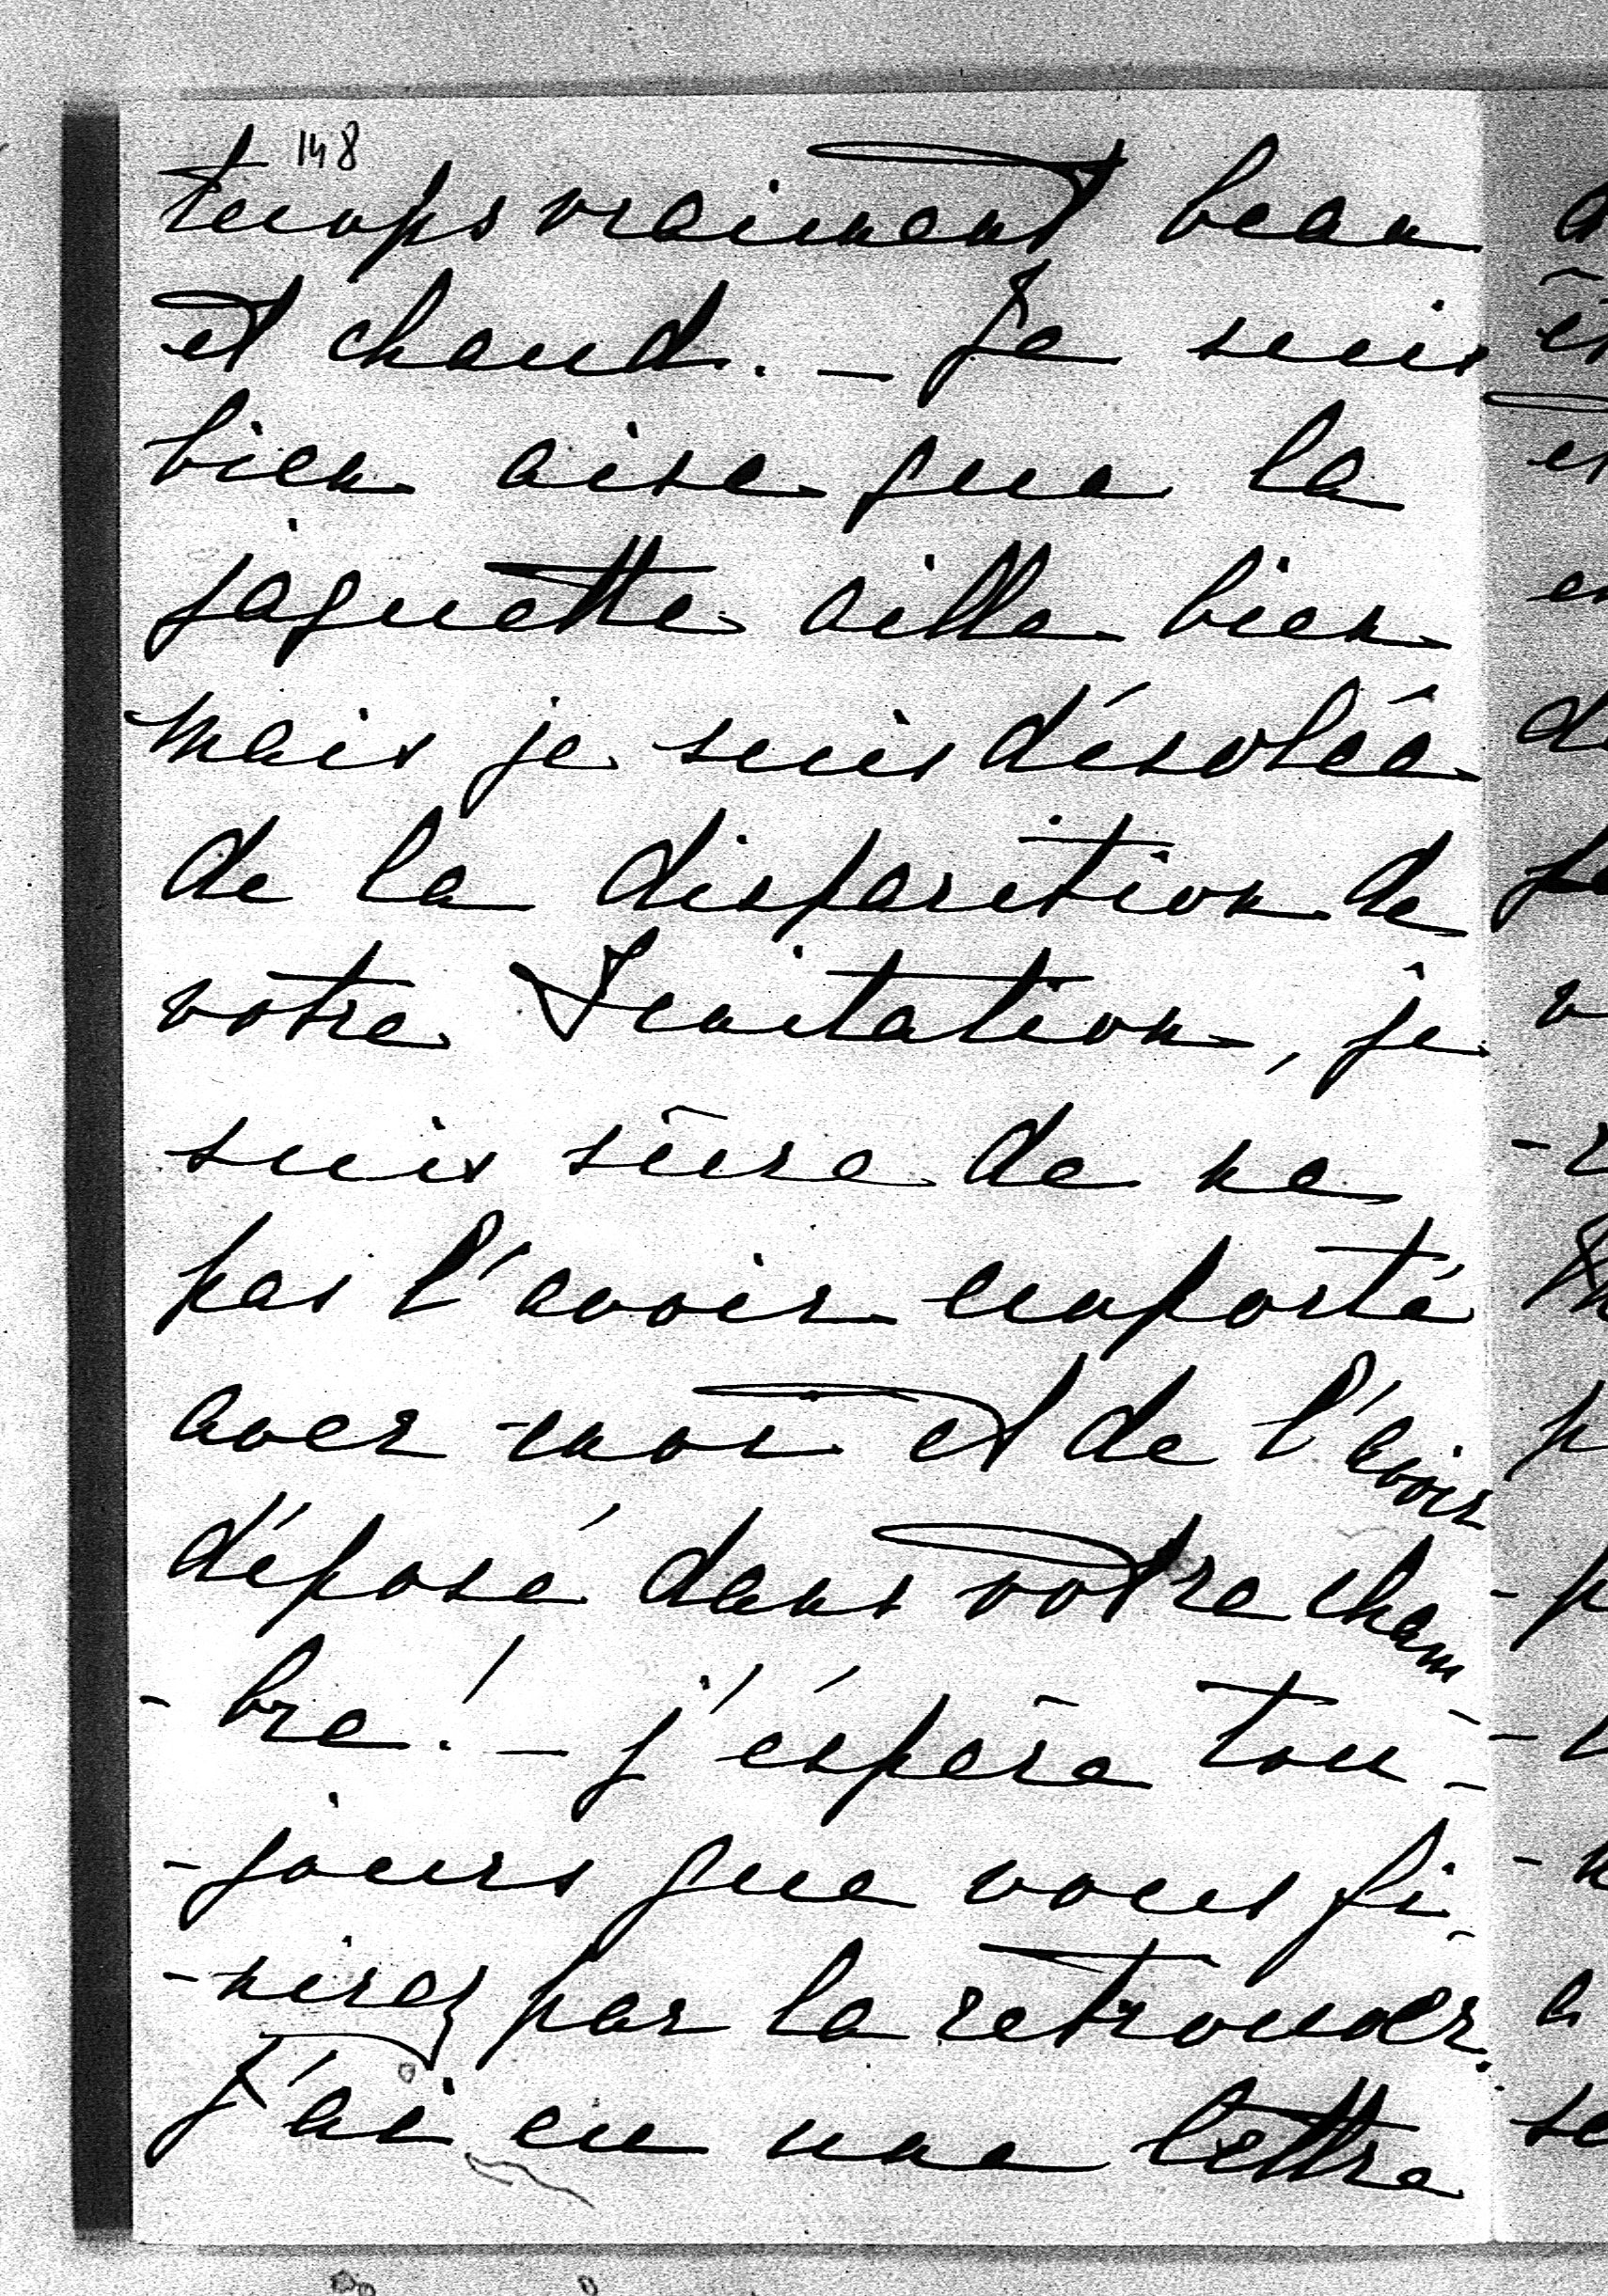 148
temps vraiment beau
et chaud. _ Je suis
bien aise que la
jaquette aille bien
mais je suis désolée
de la disparition de
votre Imitation, je
suis sûre de ne
pas l'avoir emporté
avec moi et de l'avoir
déposé dans votre cham
-bre! _ j'éspère tou-
-jours que vous fi-
-nirez par la retrouver.
J'ai eu une lettre